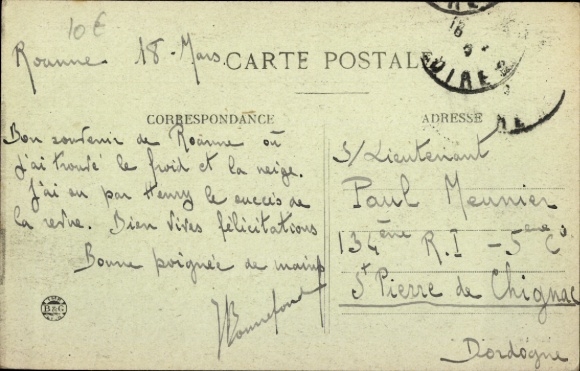 10€
Roanne 18-Mars
CARTE POSTALE
CORRESPONDANCE
Bon souvenir de Roanne où
j'ai trouvé le froid et la neige.
J'ai eu par Henry le succès de
la revue. Bien vives félicitations
Bonne poignée de mains
Bonnefond
B&G
ADRESSE
S/Lieutenant
Paul Meunier
134ème R.I - 5eme Cie
St Pierre de Chignac
Dordogne
18
OIRE